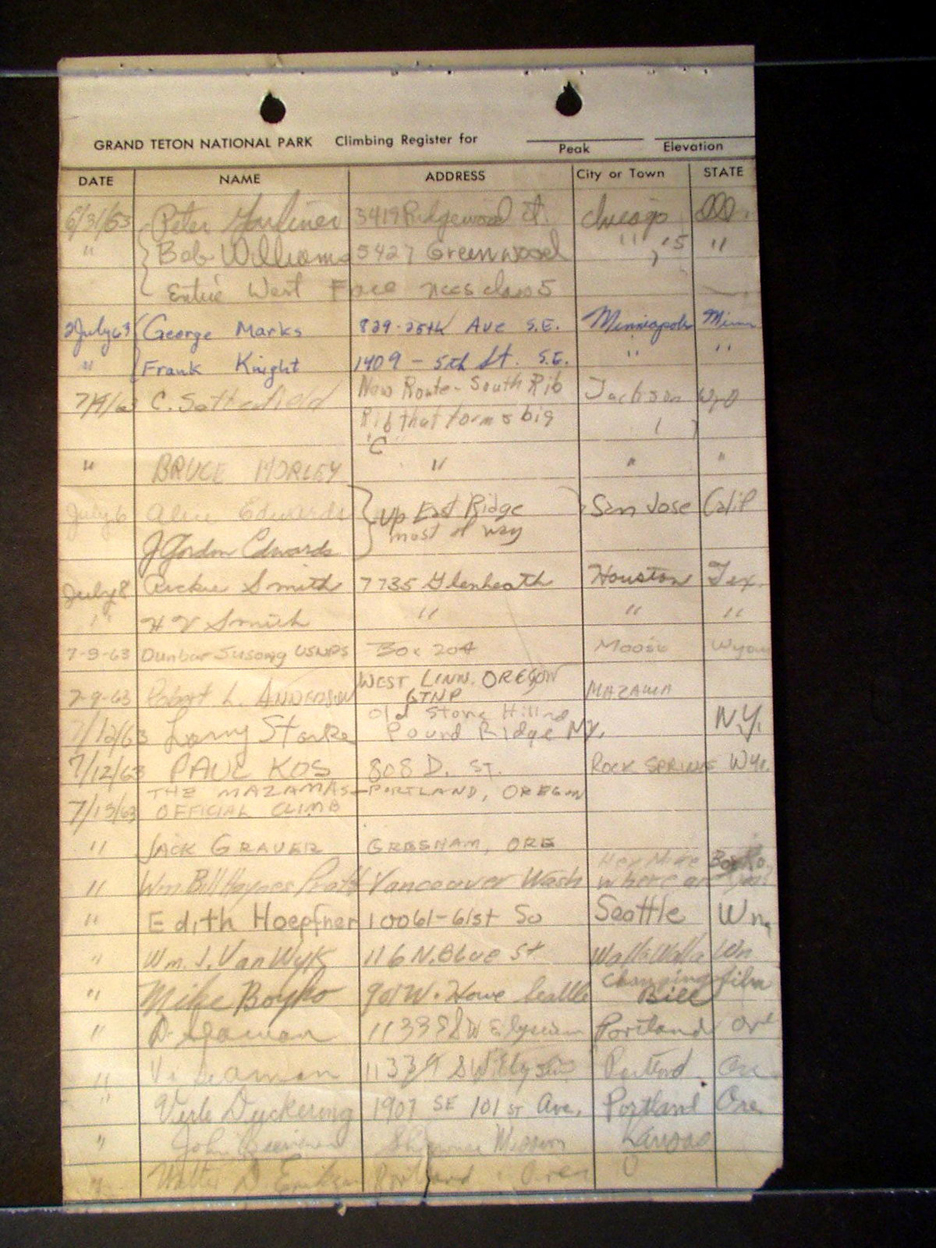 GRAND TETON NATIONAL PARK Climbing Register for
Peak Elevation
DATE NAME ADDRESS City or Town STATE
Peter 3419 Ridgewood Ct. Chicago Ill.
" Bob Williams 5427 Greenwood " , 15 "
Entire West Face nccs class 5
2 July 63 George Marks 829-25th Ave S.E. Minneapolis Minn
" Frank Knight 1409 - 5th St. S.E. " "
7/4/63 C. Satterfield New Route - South Rib Jackson Wyo
Rib that forms big ( )
"C"
" BRUCE MORLEY " " "
July 6 Alice Edwards Up East Ridge San Jose Calif
J Gordon Edwards most of way
July 8 Smith 7735 Glenheath Houston Tex.
" H V Smith " " "
7-9-63 Dunbar Susong USNPS Box 204 Moose Wyo
WEST LINN, OREGON
7-9-63 Robert L. ANDERSON GTNP MAZAMA
7/12/63 Larry Old Stone Hill Rd N.Y.
Pound Ridge NY.
7/12/63 PAUL KOS 808 D. ST. ROCK SPRINGS Wyo.
7/13/63 THE MAZAMAS- PORTLAND, OREGON
OFFICIAL CLIMB
" JACK GRAUER GRESHAM, ORE
Hey Mike Boyko
" Wm Bill Haynes Pratt Vancouver Wash where are you?
" Edith Hoepfner 10061-61st So Seattle Wn.
" Wm. J. Van Wyk 116 N. Blue St Walla Walla Wn
" Mike Boyko 901 W. Howe Seattle changing film
Bill
" D. Seaman 11339 SW Elysium Portland Ore
" Vi Seaman 11339 SW Elysium Portland Ore
" Verle Duckering 1907 SE 101 ST Ave, Portland Ore
" John Shawnee Mission Kansas
" Walter D. Portland Oreg